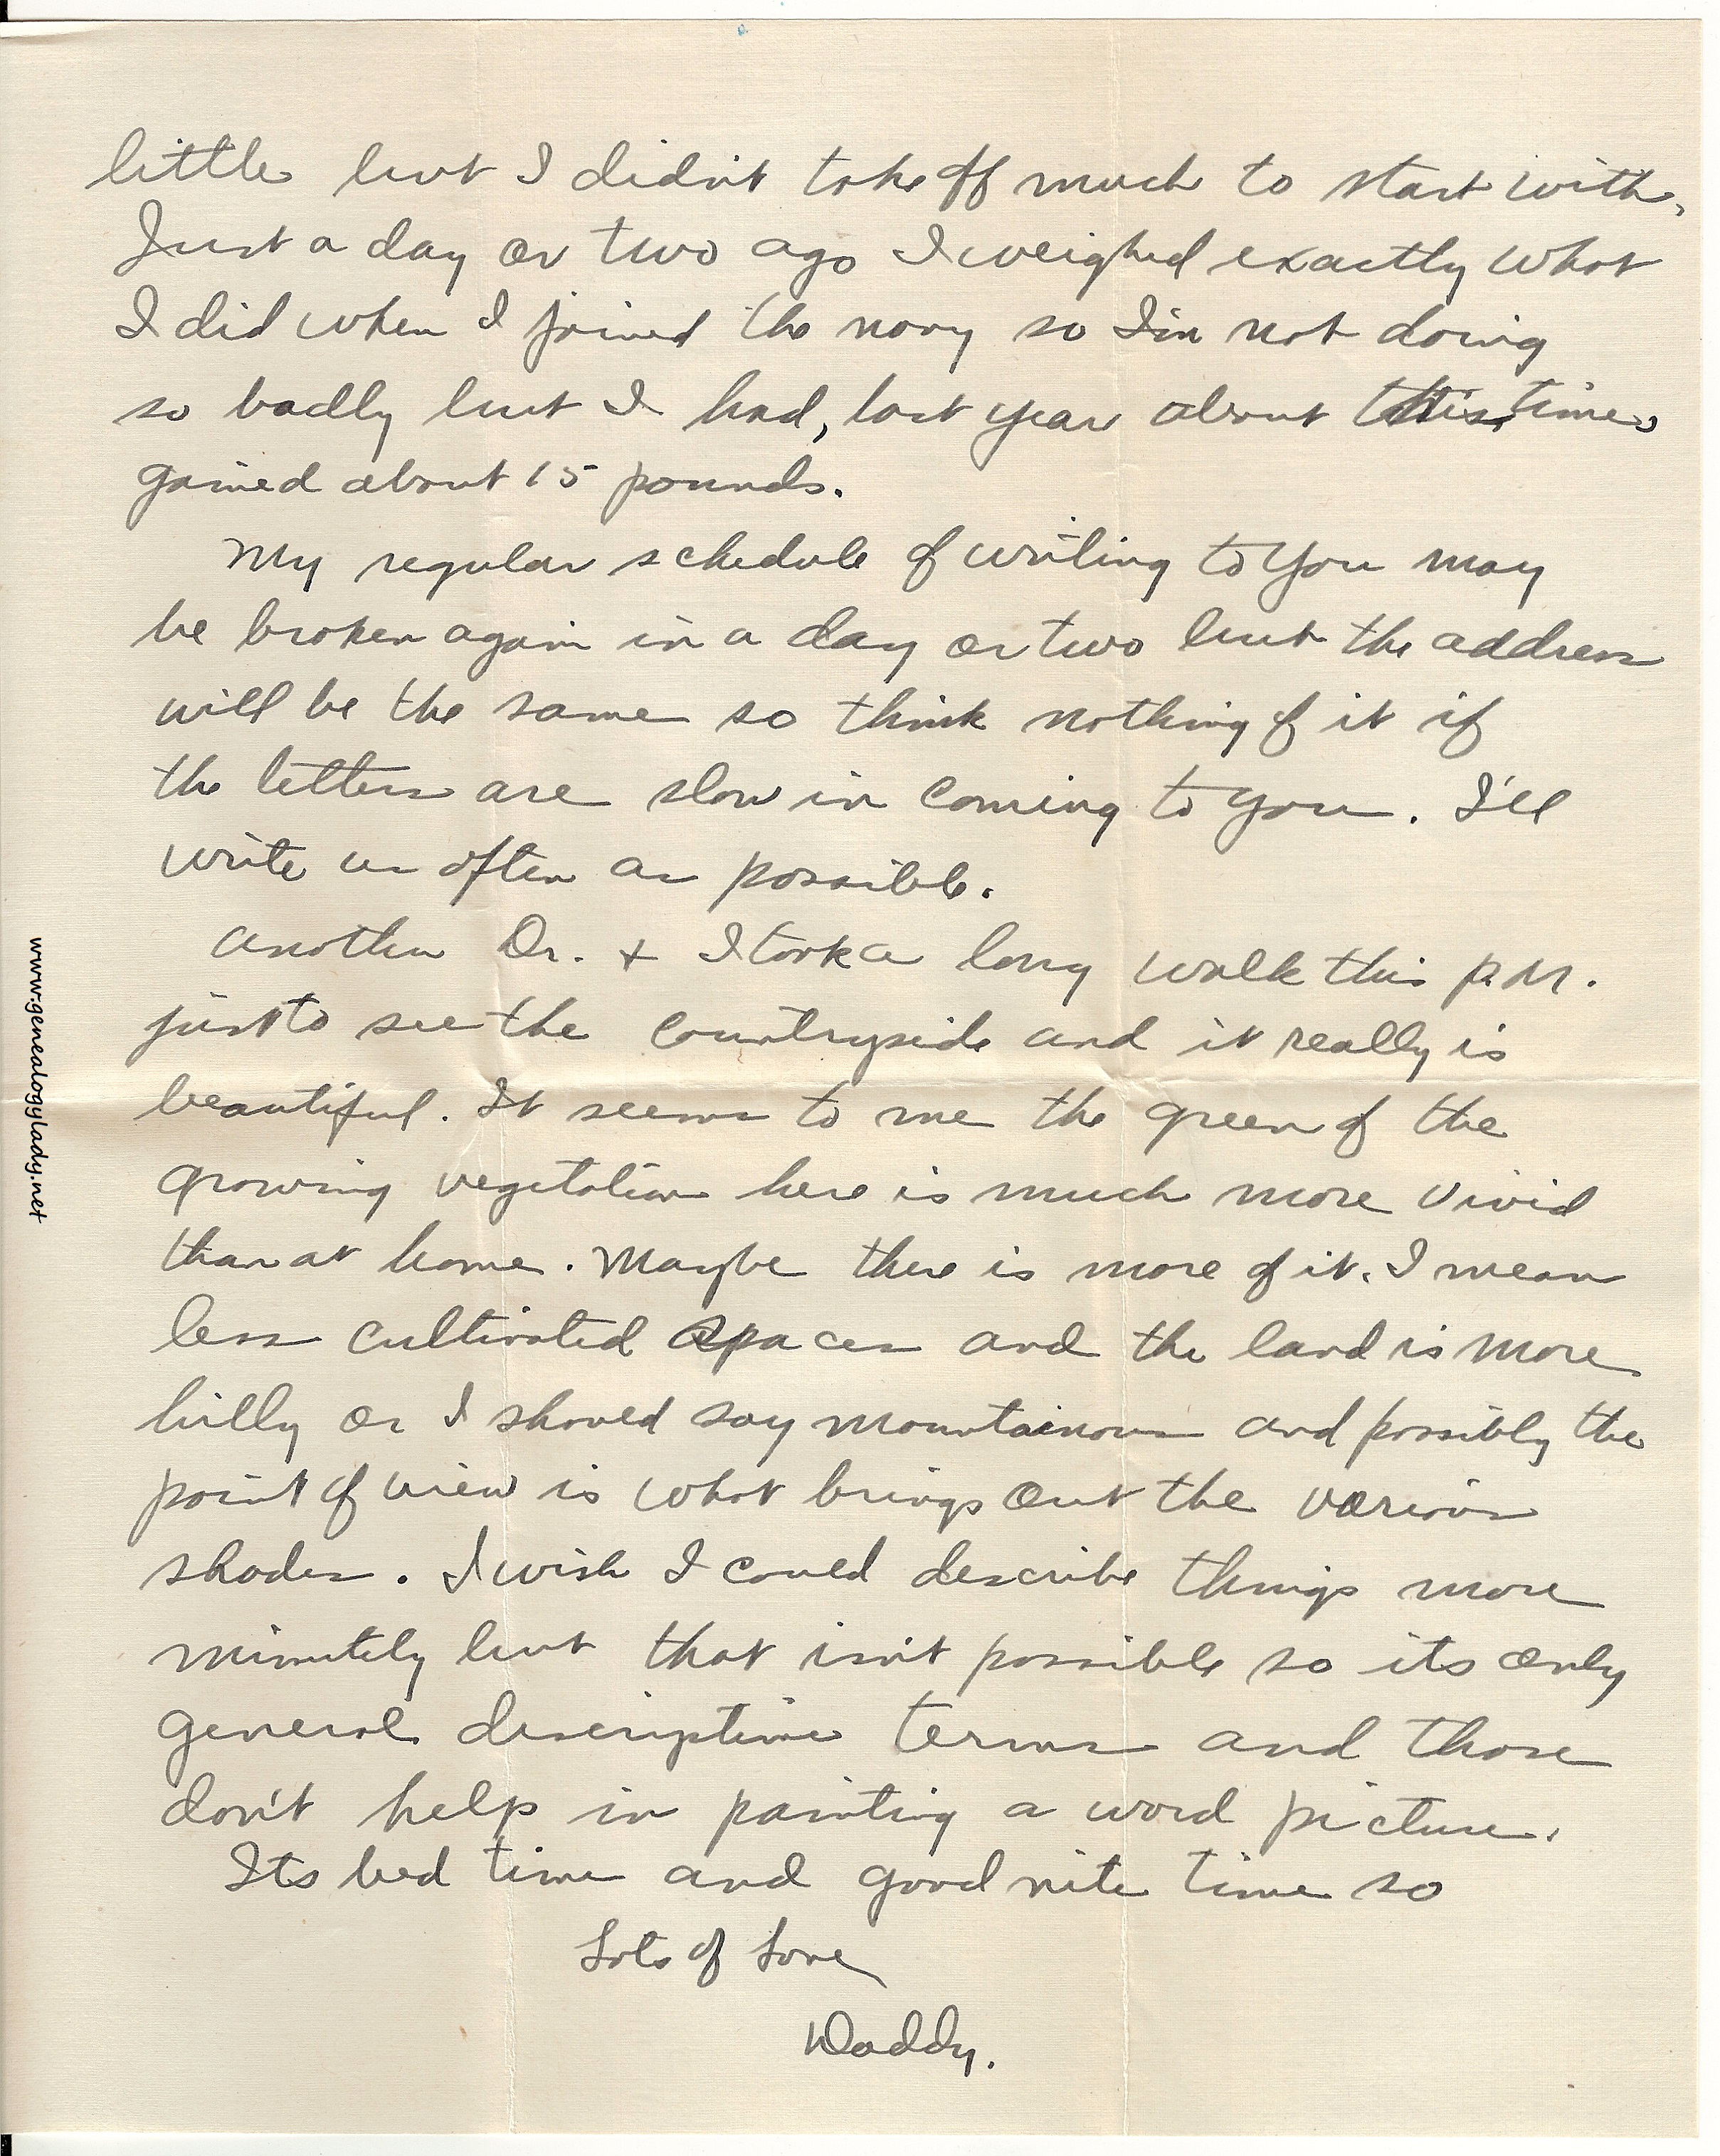 little but I didn't take off much to start with.
Just a day or two ago I weighed exactly what
I did when I joined the navy so I'm not doing
so badly but I had, last year about this time,
gained about 15 pounds.
My regular schedule of writing to you may
be broken again in a day or two but the address
will be the same so think nothing of it if
the letters are slow in coming to you. I'll
write as often as possible.
Another Dr. + I took a long walk this p.m.
just to see the countryside and it really is
beautiful. It seems to me the green of the
growing vegetation here is much more vivid
than at home. Maybe there is more of it. I mean
less cultivated spaces and the land is more
hilly or I should say mountainous and possibly the
point of view is what brings out the various
shades. I wish I could describe things more
minutely but that isn't possible so its only
general descriptive terms and those
don't help in painting a word picture.
Its bed time and good nite time so
Lots of Love
Daddy.
www.genealogylady.net